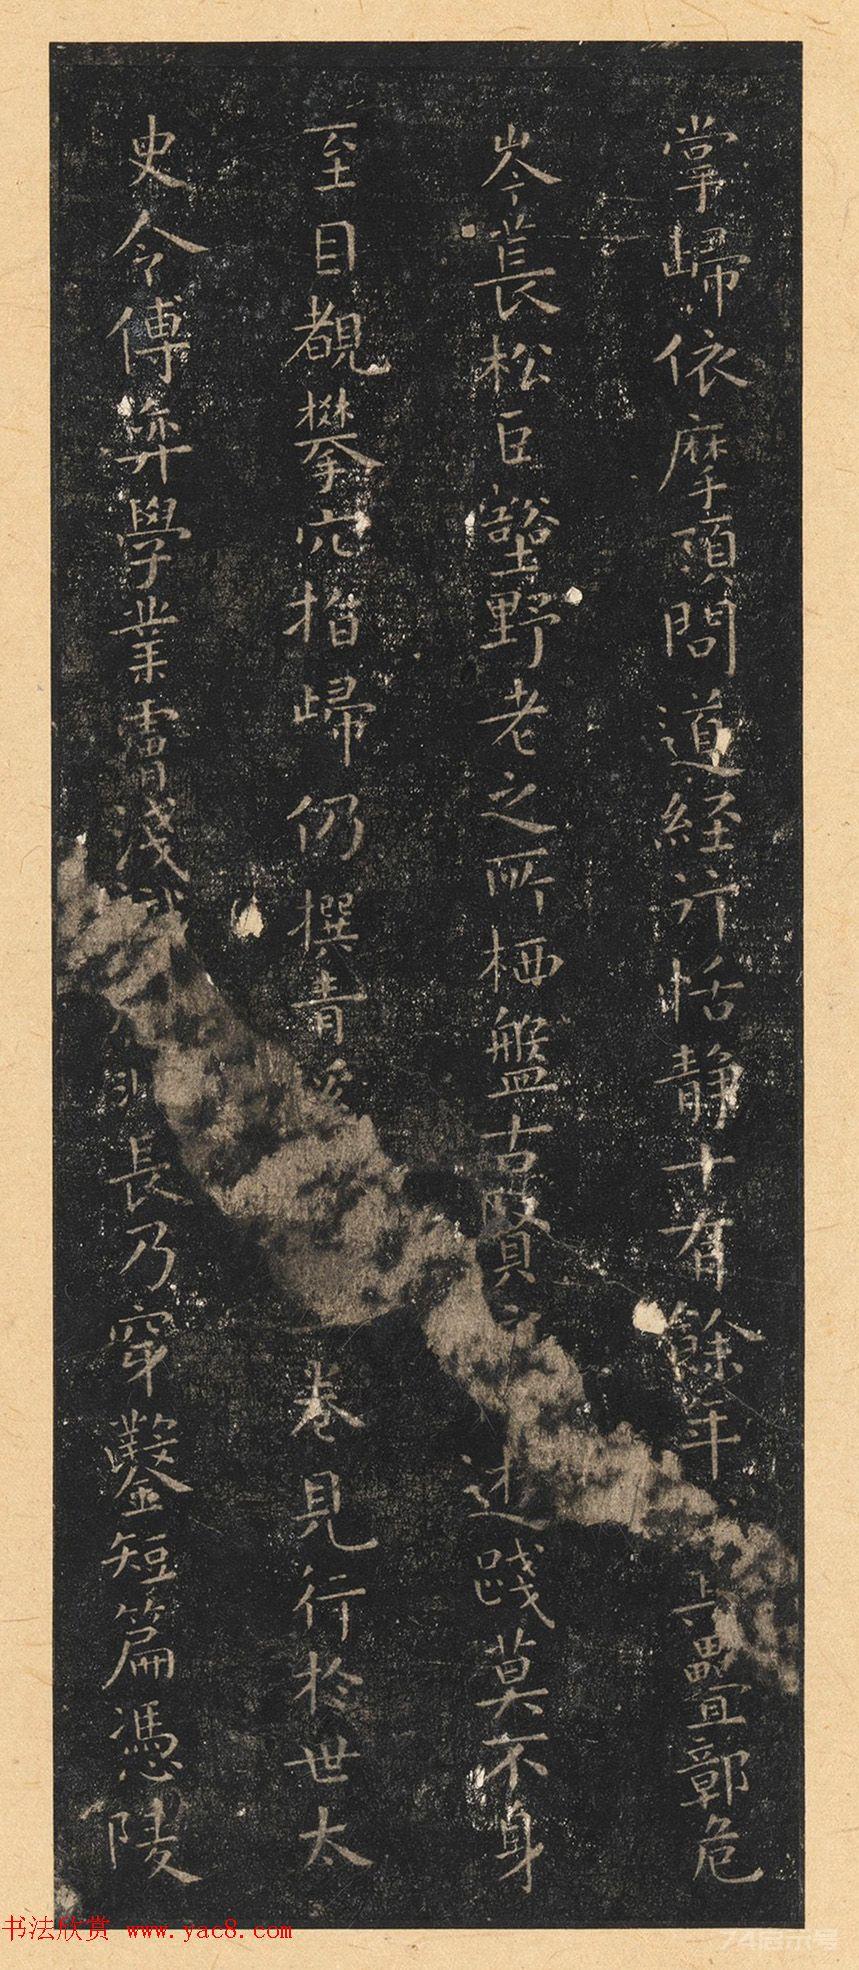 掌歸依摩頂問道経行恬静十有餘年疊鄣危
岑長松巨壑野老之所栖盤古賢述踐莫不身
至目覩攀穴指歸仍撰青卷見行於世太
史令傅弈學業膚浅長乃穿鑿短篇馮陵
书法欣赏 www.yac8.com
74启示号